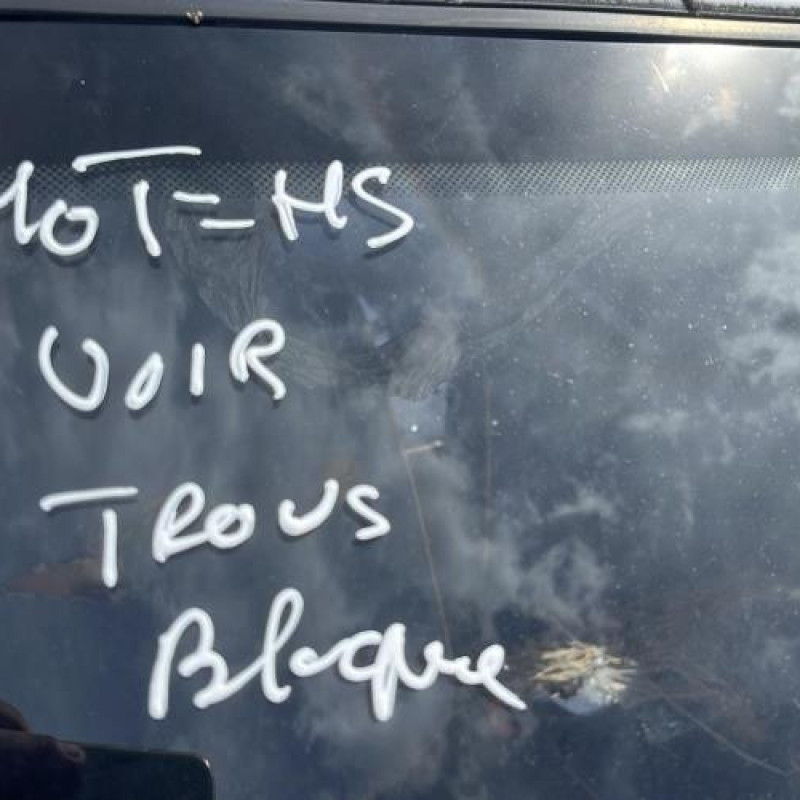 MOT=HS
VOIR
TROUS
Bloque